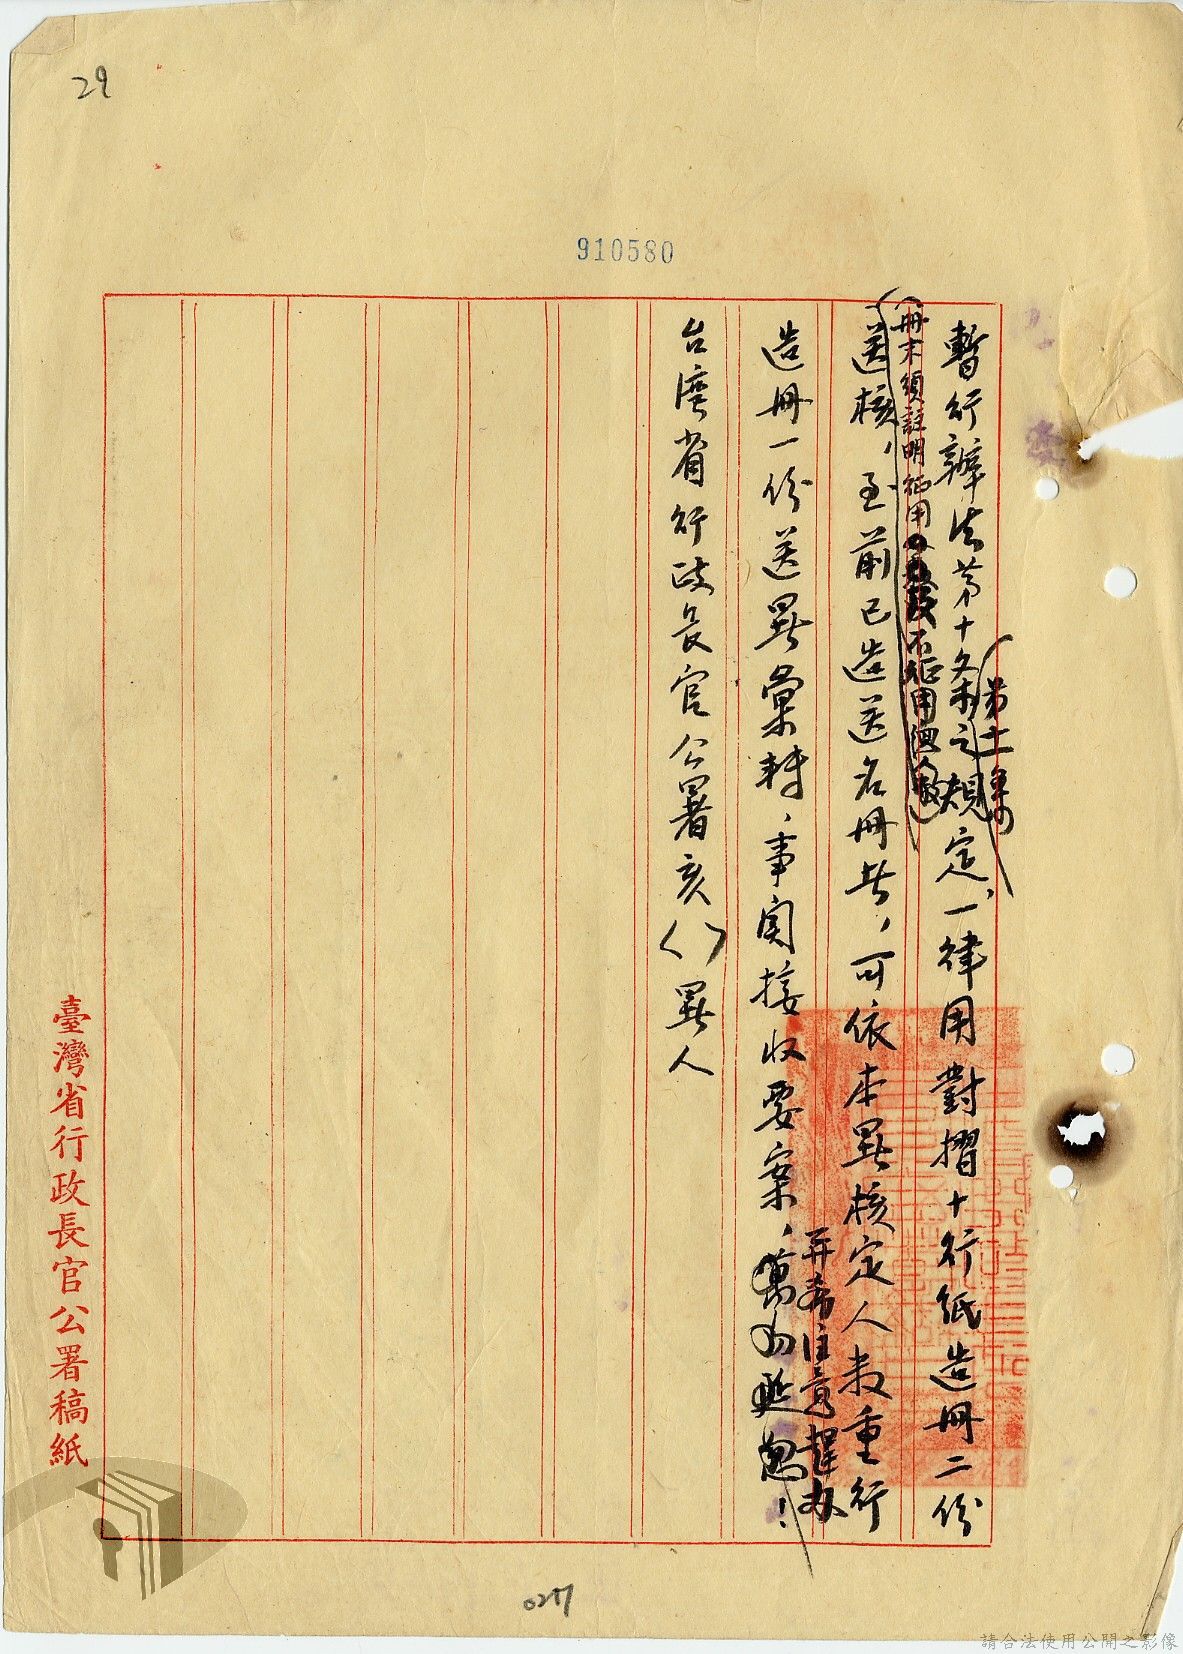 29
910580
暫行辦法第十条之規定，一律用對摺十行紙造冊二份
第十一條
（冊末須註明征用不征用個人數）
送核，至前已造送名冊者，可依本署核定人数重行
造冊一份送署彙轉，事関接收要案，萬勿延忽！
并希注意趕办
台湾省行政長官公署亥（）署人
臺灣省行政長官公署稿紙
0277
請合法使用公開之影像